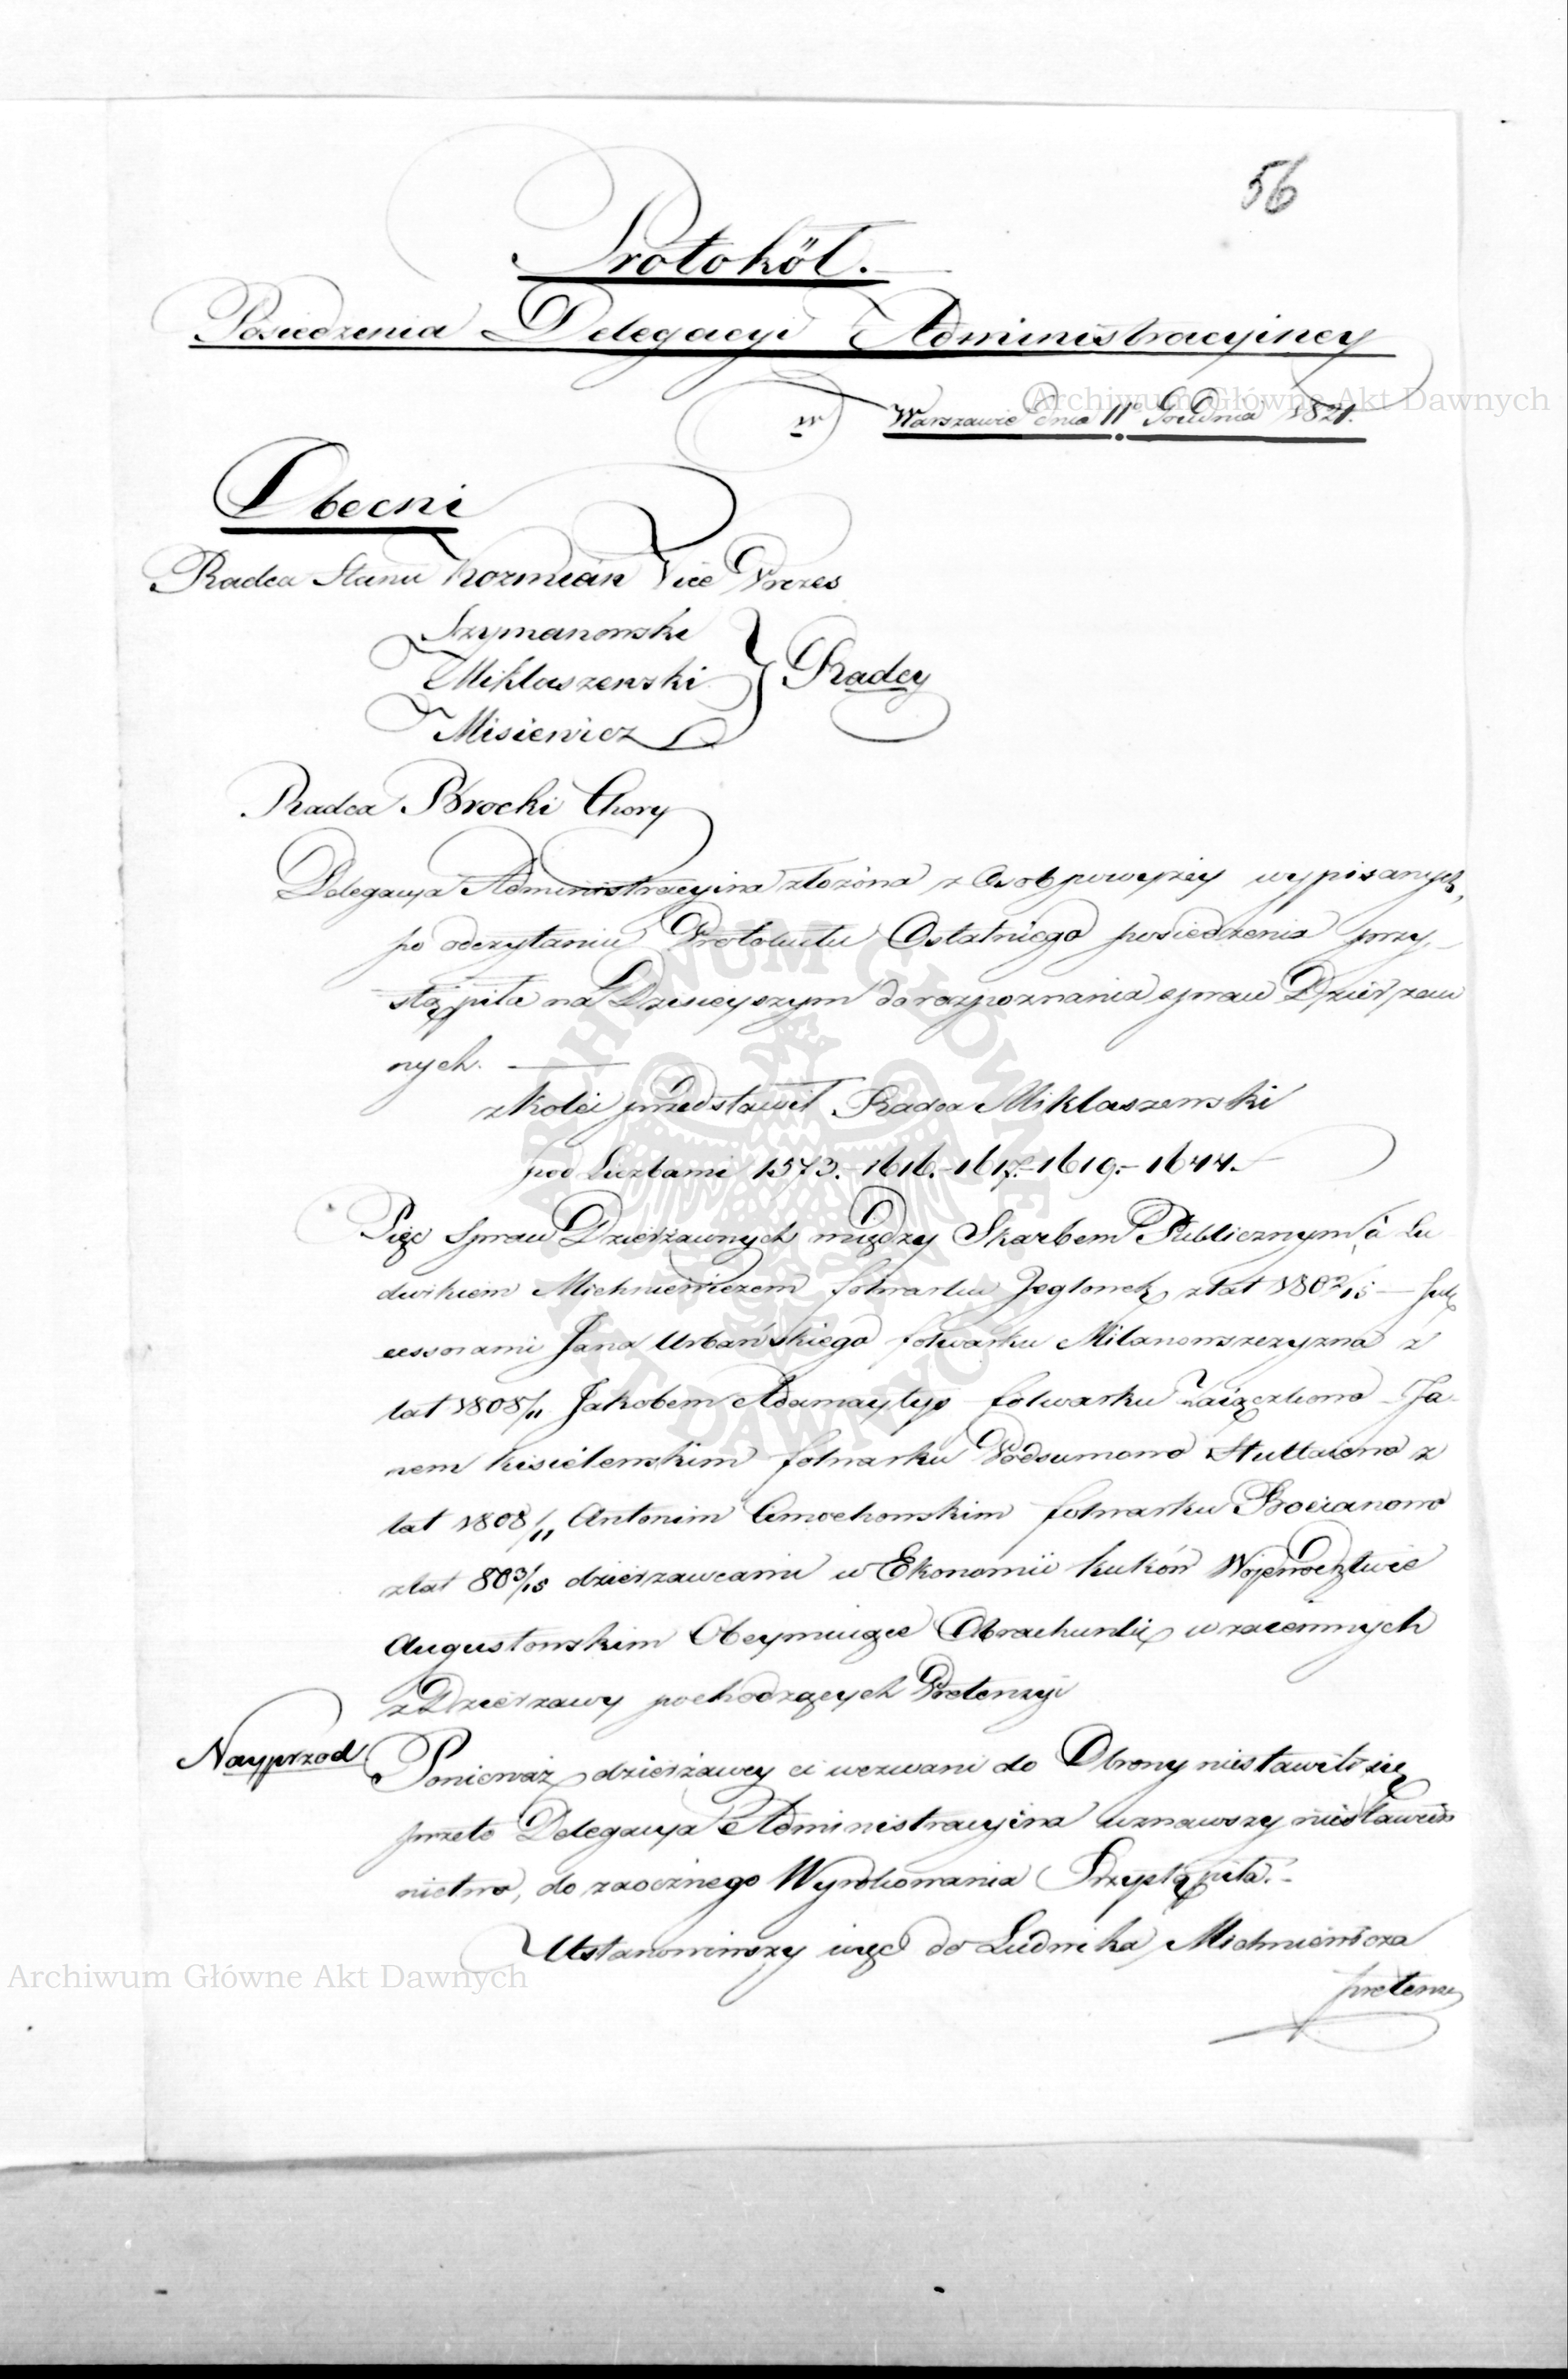 56
Protokół.
Posiedzenia Delegacyi Administracyiney
w Warszawie dnia 11º Grudnia 1821.
Obecni
Radca Stanu Kozmian Vice Prezes
Szymanowski
Miklaszewski } Radcy
Misiewicz
Radca Brocki Chory
Delegacya Administracyina złożona z Osob powyżey wypisanych,
po odczytaniu Protokułu Ostatniego posiedzenia przy-
stąpiła na Dzisieyszym do rozpoznania spraw Dzierzaw
nych.
z kolei przedstawił Radca Miklaszewski
pod Liczbami 1573.-1616.-1617.-1619.-1644.
Pięć Spraw Dzierżawnych między Skarbem Publicznym, a Lu
dwikiem Michniewiczem folwarku Jegłonek z lat 1802/15 — Suk
cessorami Jana Urbańskiego folwarku Milanowszczyzna z
lat 1808/11 Jakobem Adamaytys folwarku Zaiączkowo Ja-
nem Kisielewskim folwarku Podsumowo z
lat 1808/11 Antonim Cimochowskim folwarku Bocianowo
z lat 803/15 dzierzawcami w Ekonomii Kuków Wojewodztwie
Augustowskim Obeymuiące Obrachunki wzaiemnych
z Dzierzawy pochodzących Pretensyi
Nayprzod Ponieważ dzierżawcy ci wezwani do Obrony niestawili się
przeto Delegacya Administracyina uznawszy niestawien
nictwo, do zaocznego Wyrokowania Przystąpiła.-
Ustanowiwszy więc do Ludwika Michniewicza
pretens
Archiwum Główne Akt Dawnych
Archiwum Główne Akt Dawnych
ARCHIWUM GŁÓWNE AKT DAWNYCH